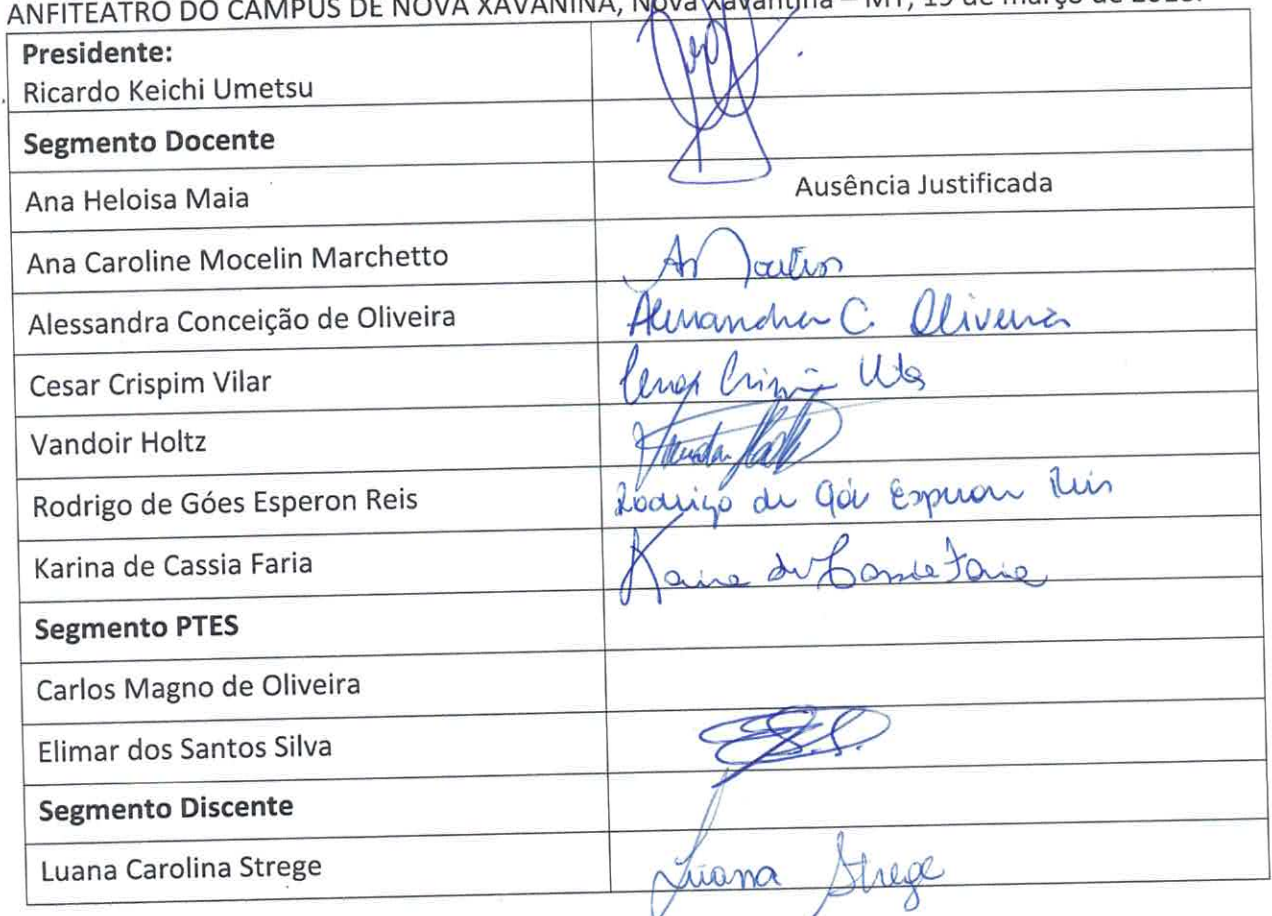 ANFITEATRO DO CAMPUS DE NOVA XAVANINA, Nova Xavantina – MT, 19 de março de
Presidente:
Ricardo Keichi Umetsu
Segmento Docente
Ana Heloisa Maia Ausência Justificada
Ana Caroline Mocelin Marchetto
Alessandra Conceição de Oliveira Alessandra C. Oliveira
Cesar Crispim Vilar Cesar Crispim Vilar
Vandoir Holtz
Rodrigo de Góes Esperon Reis Rodrigo de Góes Esperon Reis
Karina de Cassia Faria Karina de Cassia Faria
Segmento PTES
Carlos Magno de Oliveira
Elimar dos Santos Silva
Segmento Discente
Luana Carolina Strege Luana Strege